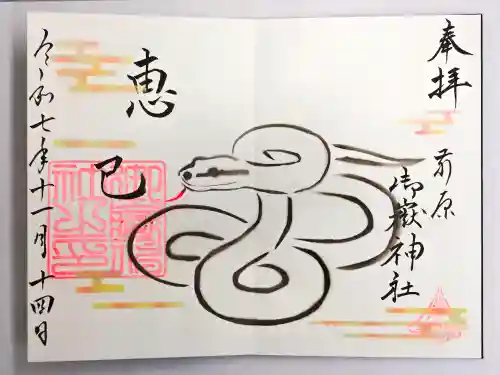 奉拝
前原
御嶽神社
恵
巳
令和七年十一月十四日